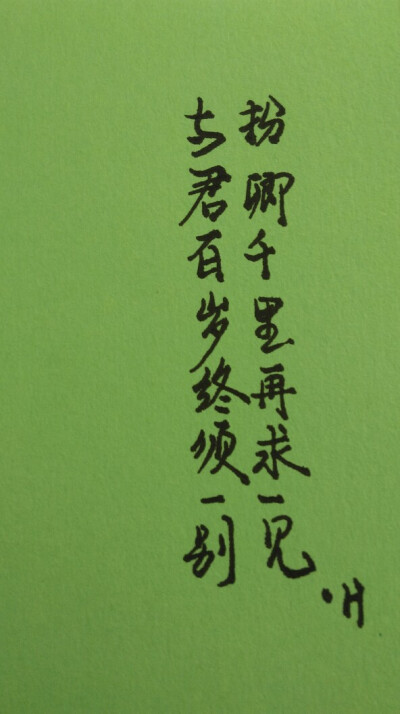 扮卿千里再求一见
与君百岁终须一别
·H